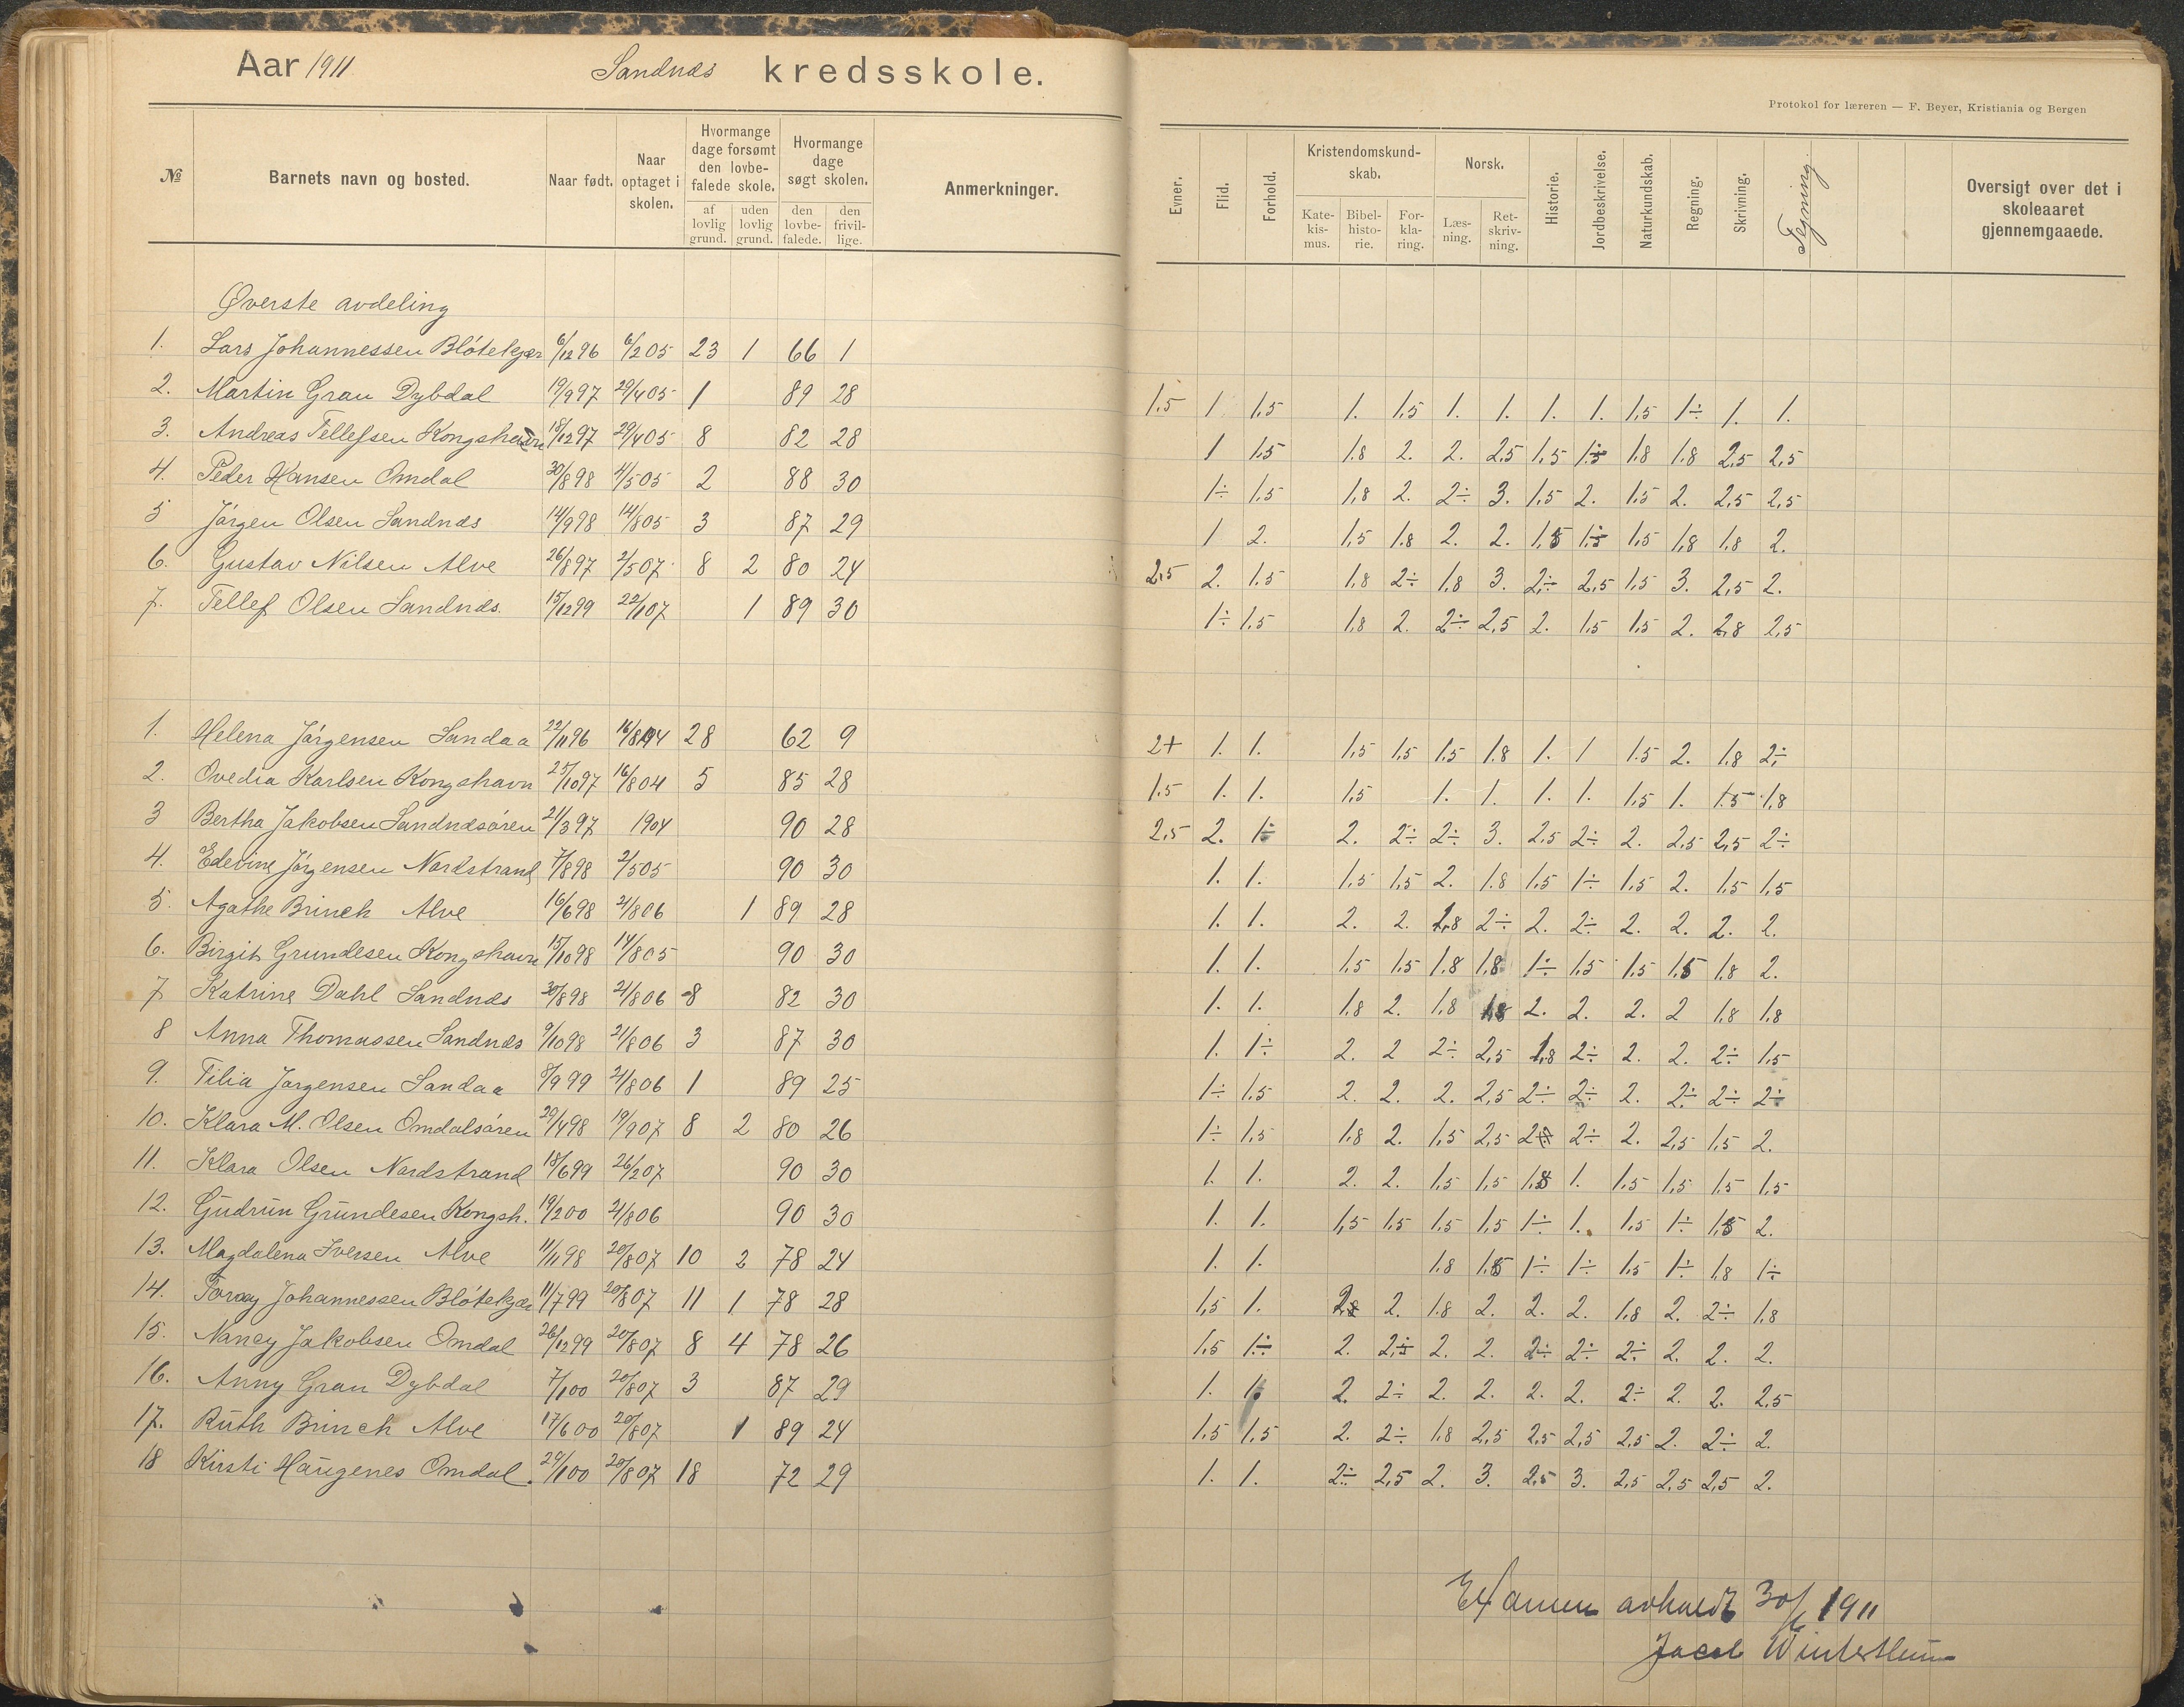 Aar 1911 Sandnæs kredsskole.
№ Barnets navn og bosted. Naar født. Naar optaget i skolen. Hvormange dage forsømt den lovbefalede skole. af lovlig grund. uden lovlig grund. Hvormange dage søgt skolen. den lovbefalede. den frivillige. Anmerkninger.
Øverste avdeling
1. Lars Johannessen Blótekjær 6/12 96 6/2 05 23 1 66 1
2. Martin Grau Dybdal 19/9 97 29/4 05 1 89 28
3. Andreas Tellefsen Kongshavn 18/12 97 29/4 05 8 82 28
4. Peder Hansen Omdal 30/8 98 4/5 05 2 88 30
5 Jórgen Olsen Sandnæs 14/9 98 14/8 05 3 87 29
6. Gustav Nilsen Alve 26/8 97 2/5 07 8 2 80 24
7. Tellef Olsen Sandnæs. 15/12 99 22/1 07 1 89 30
1. Helena Jórgensen Sandaa 22/11 96 16/8 04 28 62 9
2. Ovedia Karlsen Kongshavn 25/10 97 16/8 04 5 85 28
3 Bertha Jakobsen Sandnæsóren 21/3 97 1904 90 28
4. Edevine Jórgensen Nordstrand 7/8 98 2/5 05 90 30
5. Agathe Brinch Alve 16/6 98 21/8 06 1 89 28
6. Birgit Grundesen Kongshavn 15/10 98 14/8 05 90 30
7 Katrine Dahl Sandnæs 30/8 98 21/8 06 8 82 30
8 Anna Thomassen Sandnæs 9/10 98 21/8 06 3 87 30
9. Tilia Jorgensen Sandaa 8/9 99 21/8 06 1 89 25
10. Klara M. Olsen Omdalsóren 29/4 98 19/9 07 8 2 80 26
11. Klara Olsen Nordstrand 18/6 99 26/2 07 90 30
12. Gudrun Grundesen Kongsh. 19/2 00 21/8 06 90 30
13. Magdalena Iversen Alve 11/11 98 20/8 07 10 2 78 24
14. Johannessen Blótekjær 11/7 99 20/8 07 11 1 78 28
15. Nancy Jakobsen Omdal 26/12 99 20/8 07 8 4 78 26
16. Anny Grau Dybdal 7/1 00 20/8 07 3 87 29
17. Ruth Brinch Alve 17/6 00 20/8 07 1 89 24
18 Kirsti Haugenes Omdal. 29/1 00 20/8 07 18 72 29
Protokol for læreren — F. Beyer, Kristiania og Bergen
Evner. Flid. Forhold. Kristendomskundskab. Katekismus. Bibelhistorie. Forklaring. Norsk. Læsning. Retskrivning. Historie. Jordbeskrivelse. Naturkundskab. Regning. Skrivning. Tegning. Oversigt over det i skoleaaret gjennemgaaede.
1.5 1 1.5 1. 1.5 1. 1. 1. 1. 1.5 1÷ 1. 1.
1 1.5 1.8 2. 2. 2.5 1.5 1.8 1.8 2.5 2.5
1÷ 1.5 1.8 2. 2÷ 3. 1.5 2. 1.5 2. 2.5 2.5
1 2. 1.5 1.8 2. 2. 1.5 1.8 1.8 2.
2.5 2. 1.5 1.8 2÷ 1.8 3. 2÷ 2.5 1.5 3. 2.5 2.
1÷ 1.5 1.8 2. 2÷ 2.5 2. 1.5 1.5 2. 2.8 2.5
2+ 1. 1. 1.5 1.5 1.5 1.8 1. 1 1.5 2. 1.8 2÷
1.5 1. 1. 1.5 1. 1. 1. 1. 1.5 1. 1.5 1.8
2.5 2. 1÷ 2. 2÷ 2÷ 3. 2.5 2÷ 2. 2.5 2.5 2÷
1. 1. 1.5 1.5 2. 1.8 1.5 1÷ 1.5 2. 1.5 1.5
1. 1. 2. 2. 1.8 2÷ 2. 2÷ 2. 2. 2. 2.
1. 1. 1.5 1.5 1.8 1.8 1÷ 1.5 1.5 1.5 1.8 2.
1. 1. 1.8 2. 1.8 1.8 2. 2. 2. 2 1.8 1.8
1. 1÷ 2. 2 2÷ 2.5 1.8 2÷ 2. 2. 2÷ 1.5
1÷ 1.5 2. 2. 2. 2.5 2÷ 2÷ 2. 2÷ 2÷ 2÷
1÷ 1.5 1.8 2. 1.5 2.5 2÷ 2. 2.5 1.5 2.
1. 1. 2. 2. 1.5 1.5 1.8 1. 1.5 1.5 1.5 1.5
1. 1. 1.5 1.5 1.5 1.5 1÷ 1. 1.5 1÷ 1.5 2.
1. 1. 1.8 1.5 1÷ 1÷ 1.5 1÷ 1.8 1÷
1.5 1. 2. 1.8 2. 2. 2. 1.8 2. 2÷ 1.8
1.5 1÷ 2. 2÷ 2. 2. 2÷ 2÷ 2÷ 2. 2. 2.
1. 1. 2. 2÷ 2. 2. 2. 2. 2÷ 2. 2. 2.5
1.5 1.5 2. 2÷ 1.8 2.5 2.5 2.5 2.5 2. 2÷ 2.
1. 1. 2÷ 2.5 2. 3. 2.5 3. 2.5 2.5 2.5 2.
Examen avholdt 30/6 1911
Jacob